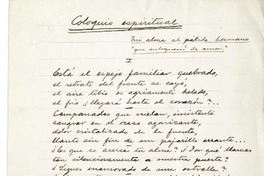 Coloquio espiritual
Mi alma al pálido hermano
que enloqueció de amor.
I
Está el espejo familiar quebrado,
el retrato del frente se cayó,
el aire tibio es agriamente helado,
el frío ¿llegará hasta el corazón?...
Campanadas que vuelan, insistente
sangrar en el ocaso agonizante,
dolor cristalizado de la fuente,
llanto sin fin de un pajarillo errante...
¿Es que se acerca tu alma? ¿Es que llaman
tan silenciosamente a nuestra puerta?
¿Sigues enamorado de una estrella?